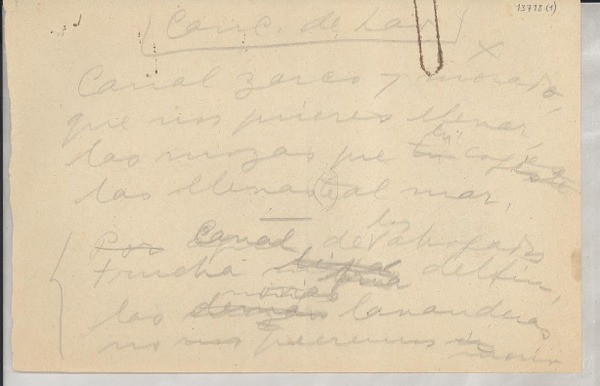 13718 (1)
(Canc. de Lav.)
Canal zarco y morado,
que nos quieres llenar,
las mozas que tú cogiste
las llenas(te) al mar.
Por Canal de los ahogados
trucha delfín,
las mozas lavanderas
no nos queremos